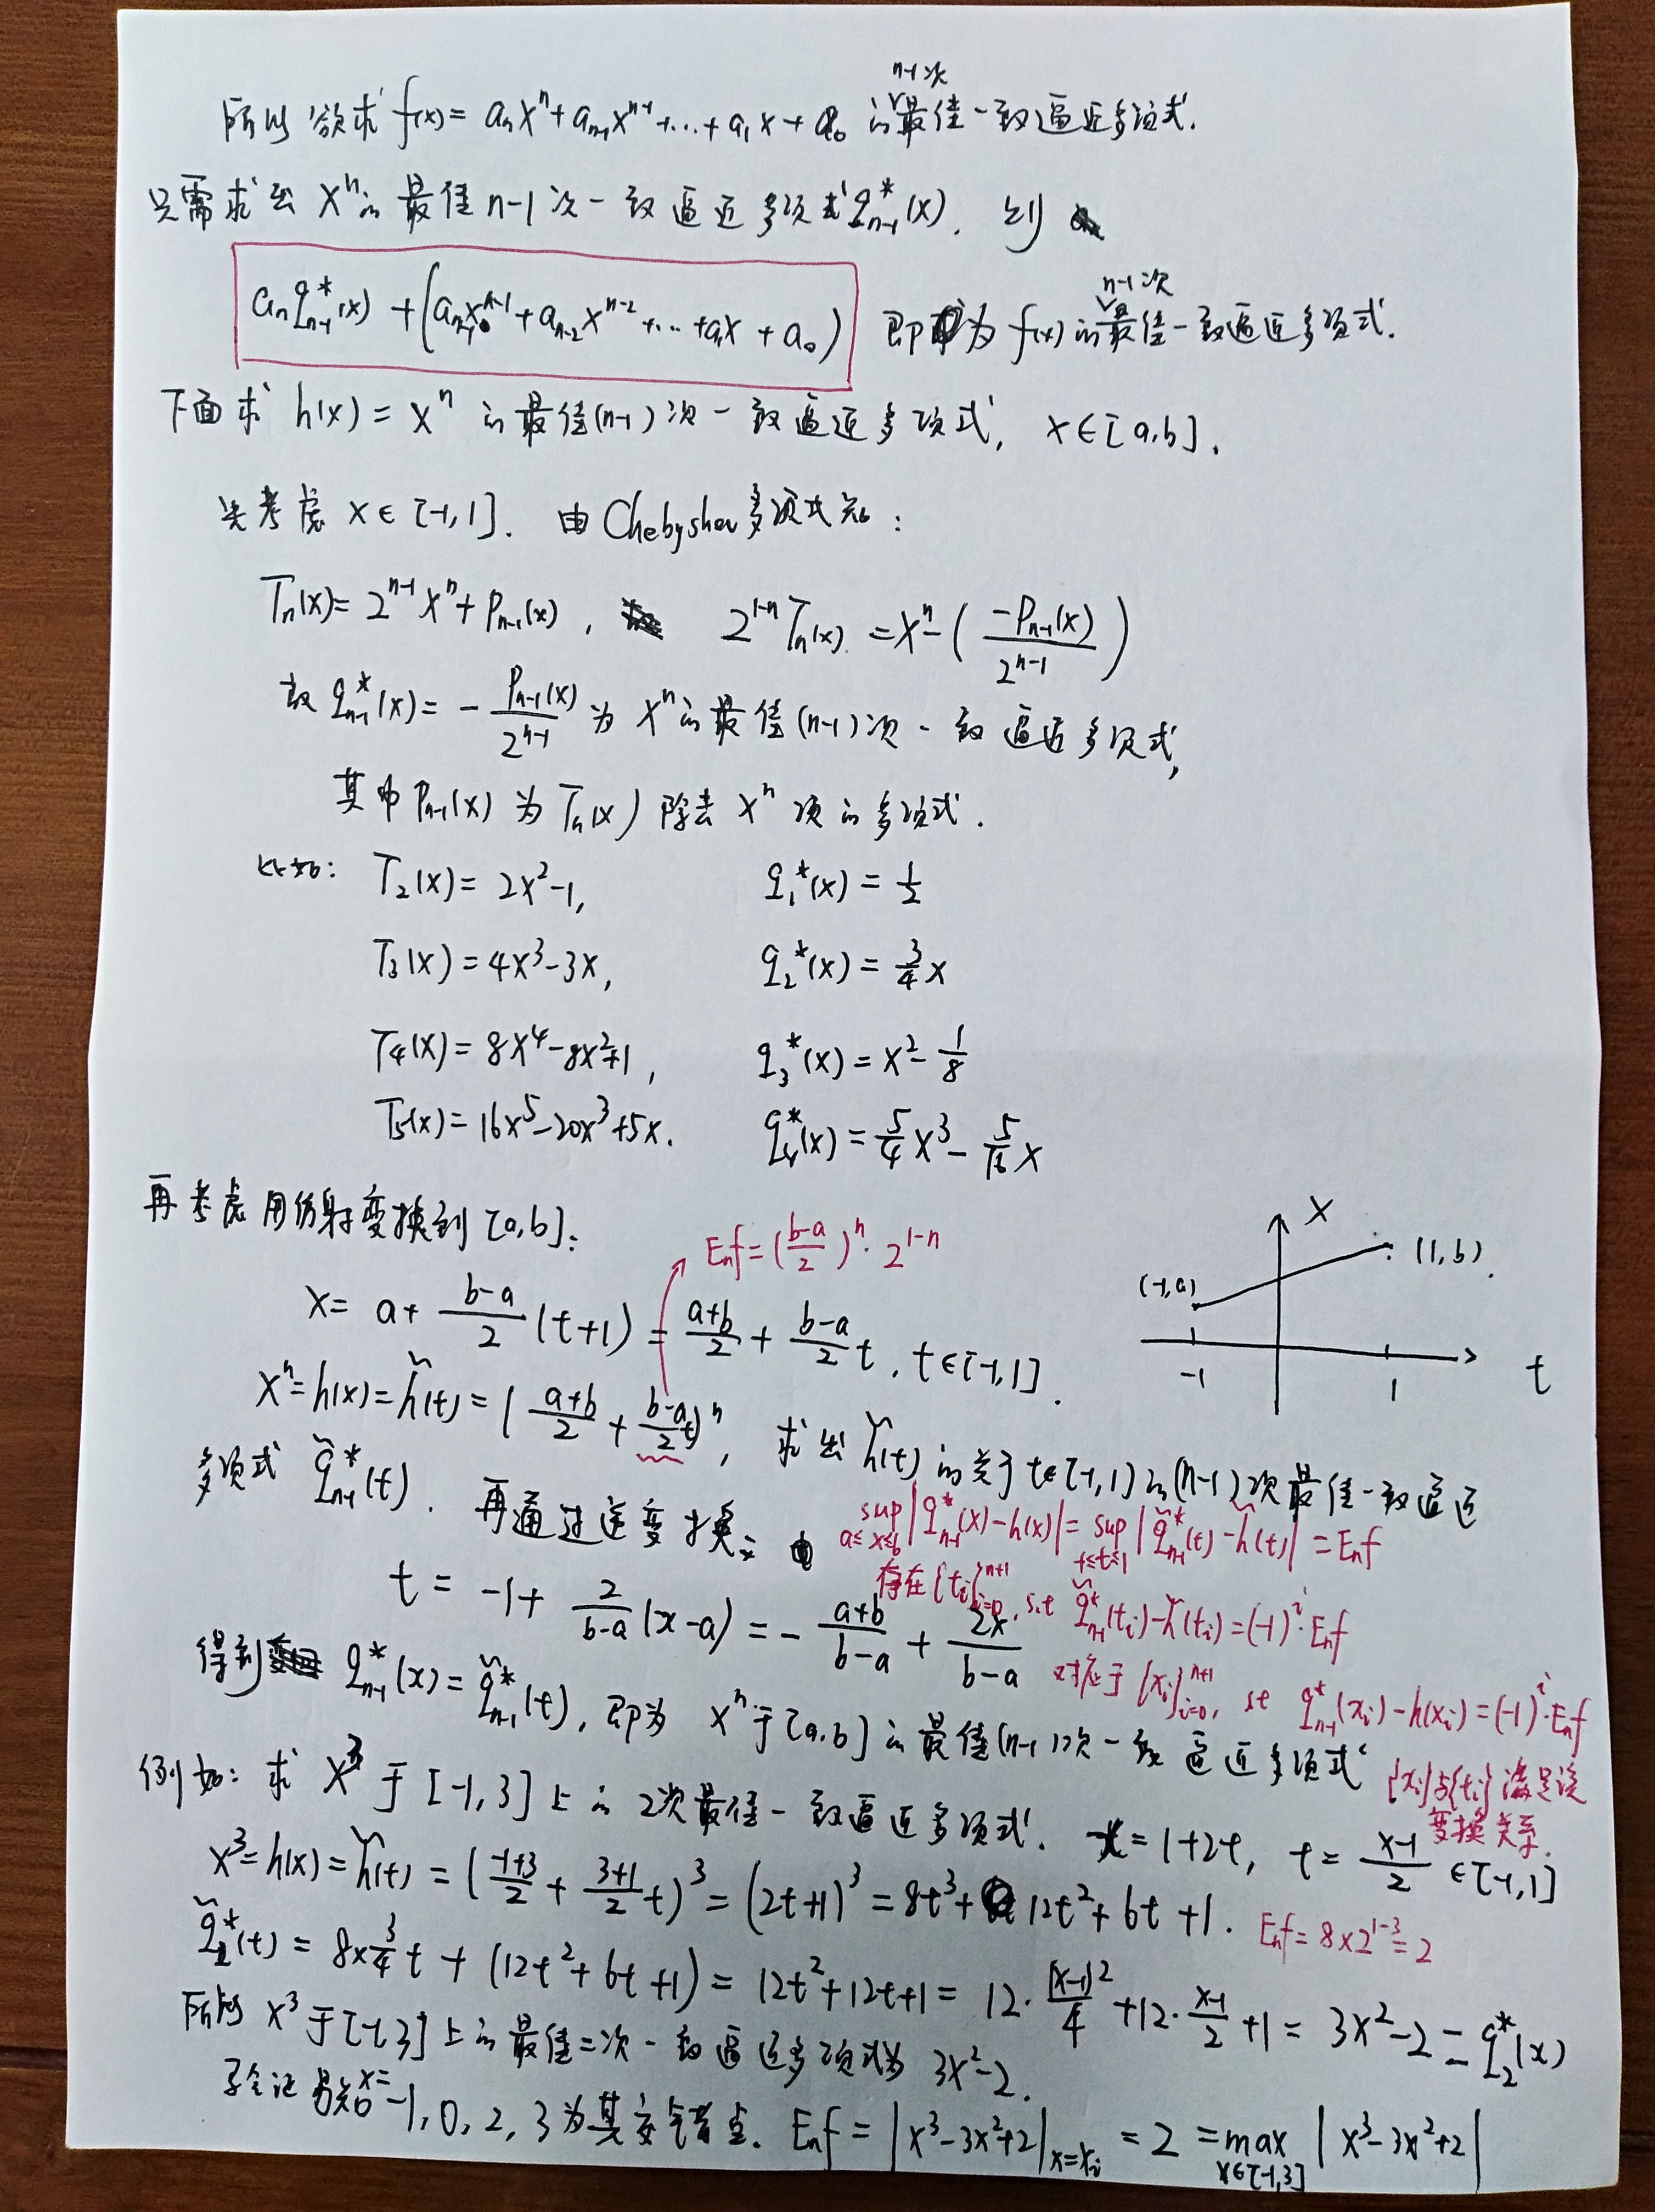 n-1次
所以欲求 f(x) = aₙxⁿ + aₙ₋₁xⁿ⁻¹ + ... + a₁x + a₀ 的最佳一致逼近多项式.
只需求出 xⁿ的最佳 n-1 次一致逼近多项式 qₙ₋₁*(x). 则
n-1次
aₙqₙ₋₁*(x) + (aₙ₋₁xⁿ⁻¹ + aₙ₋₂xⁿ⁻² + ... + a₁x + a₀) 即为 f(x) 的最佳一致逼近多项式.
下面求 h(x) = xⁿ 的最佳(n-1)次一致逼近多项式, x∈[a,b].
先考虑 x∈[-1,1]. 由Chebyshev多项式知:
Tₙ(x) = 2ⁿ⁻¹xⁿ + Pₙ₋₁(x), 2¹⁻ⁿTₙ(x) = xⁿ - (-Pₙ₋₁(x)/2ⁿ⁻¹)
故 qₙ₋₁*(x) = - Pₙ₋₁(x)/2ⁿ⁻¹ 为 xⁿ的最佳(n-1)次一致逼近多项式,
其中 Pₙ₋₁(x) 为 Tₙ(x) 除去 xⁿ 项的多项式.
比如: T₂(x) = 2x²-1, q₁*(x) = 1/2
T₃(x) = 4x³-3x, q₂*(x) = 3/4 x
T₄(x) = 8x⁴-8x²+1, q₃*(x) = x² - 1/8
T₅(x) = 16x⁵-20x³+5x. q₄*(x) = 5/4 x³ - 5/16 x
再考虑用仿射变换到 [a,b]:
Eₙf = ((b-a)/2)ⁿ · 2¹⁻ⁿ
x = a + (b-a)/2 (t+1) = (a+b)/2 + (b-a)/2 t, t∈[-1,1].
X
(-1,a)
(1,b).
-1
1
t
xⁿ = h(x) = h̃(t) = ((a+b)/2 + (b-a)/2 t)ⁿ, 求出 h̃(t) 的关于 t∈[-1,1] 的(n-1)次最佳一致逼近
多项式 q̃ₙ₋₁*(t). 再通过逆变换:
sup a≤x≤b |qₙ₋₁*(x) - h(x)| = sup -1≤t≤1 |q̃ₙ₋₁*(t) - h̃(t)| = Eₙf
存在 {tᵢ}ᵢ₌₀ⁿ⁺¹, s.t q̃ₙ₋₁*(tᵢ) - h̃(tᵢ) = (-1)ⁱ·Eₙf
t = -1 + 2/(b-a) (x-a) = - (a+b)/(b-a) + 2x/(b-a)
对应于 {xᵢ}ᵢ₌₀ⁿ⁺¹, st qₙ₋₁*(xᵢ) - h(xᵢ) = (-1)ⁱ·Eₙf
得到 qₙ₋₁*(x) = q̃ₙ₋₁*(t), 即为 xⁿ于[a,b]的最佳(n-1)次一致逼近多项式
{xᵢ}与{tᵢ}满足该
变换关系.
例如: 求 x³ 于 [-1,3] 上的 2次最佳一致逼近多项式. x = 1+2t, t = (x-1)/2 ∈[-1,1]
x³ = h(x) = h̃(t) = ((-1+3)/2 + (3+1)/2 t)³ = (2t+1)³ = 8t³ + 12t² + 6t + 1.
Eₙf = 8×2¹⁻³ = 2
q̃₂*(t) = 8×3/4 t + (12t²+6t+1) = 12t²+12t+1 = 12·(x-1)²/4 + 12·(x-1)/2 + 1 = 3x²-2 = q₂*(x)
所以 x³ 于[-1,3]上的最佳二次一致逼近多项式为 3x²-2.
验证易知 x= -1, 0, 2, 3 为其交错点. Eₙf = |x³-3x²+2|ₓ₌ₓᵢ = 2 = max x∈[-1,3] |x³-3x²+2|